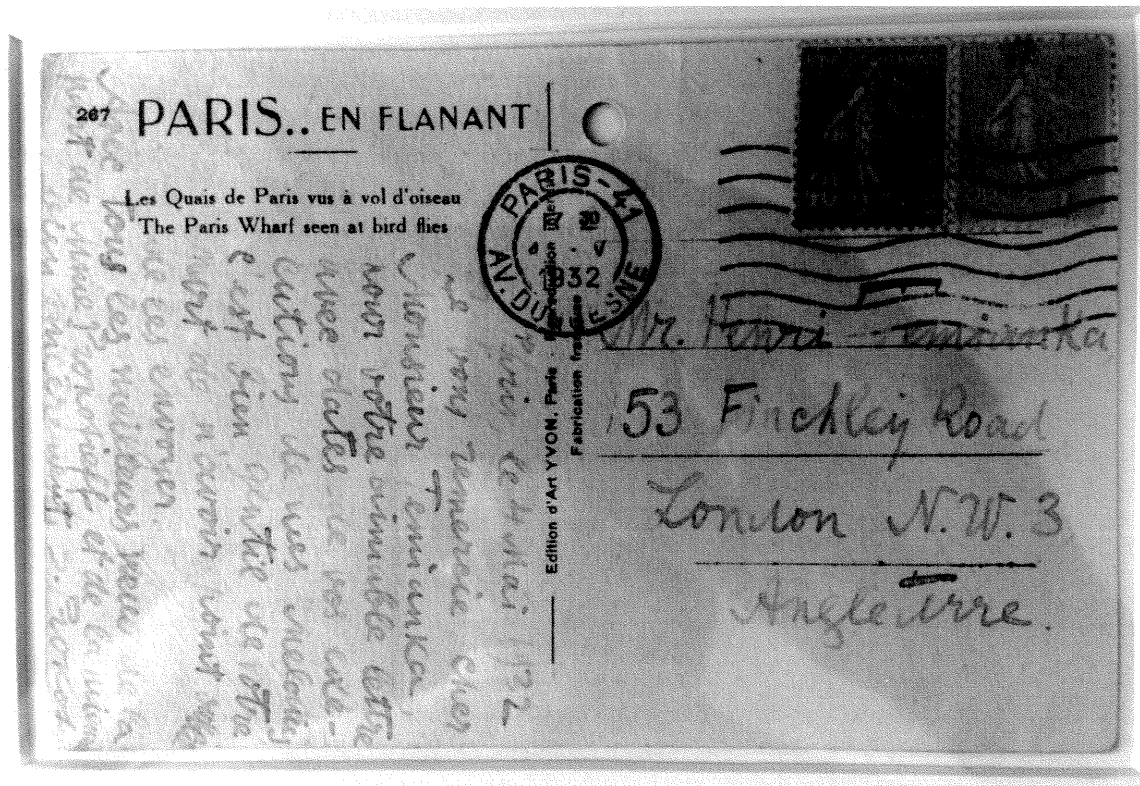 267 PARIS.. EN FLANANT
Les Quais de Paris vus à vol d'oiseau
The Paris Wharf seen at bird flies
PARIS-41
1932
AV. DU
Edition d'Art YVON, Paris
Fabrication française
Mr. Henri Temianka
153 Finchley Road
London N.W. 3
Angleterre.
Paris, le 4 Mai 1932
Je vous remercie cher
Monsieur Temianka,
pour votre aimable lettre
avec dates de vos exé-
cutions de mes melodies
c'est bien gentil de votre
part de m'avoir
les envoyer.
tous les meilleurs voeux de la
part de Mme Prokofieff et de la mienne
S. Prokof